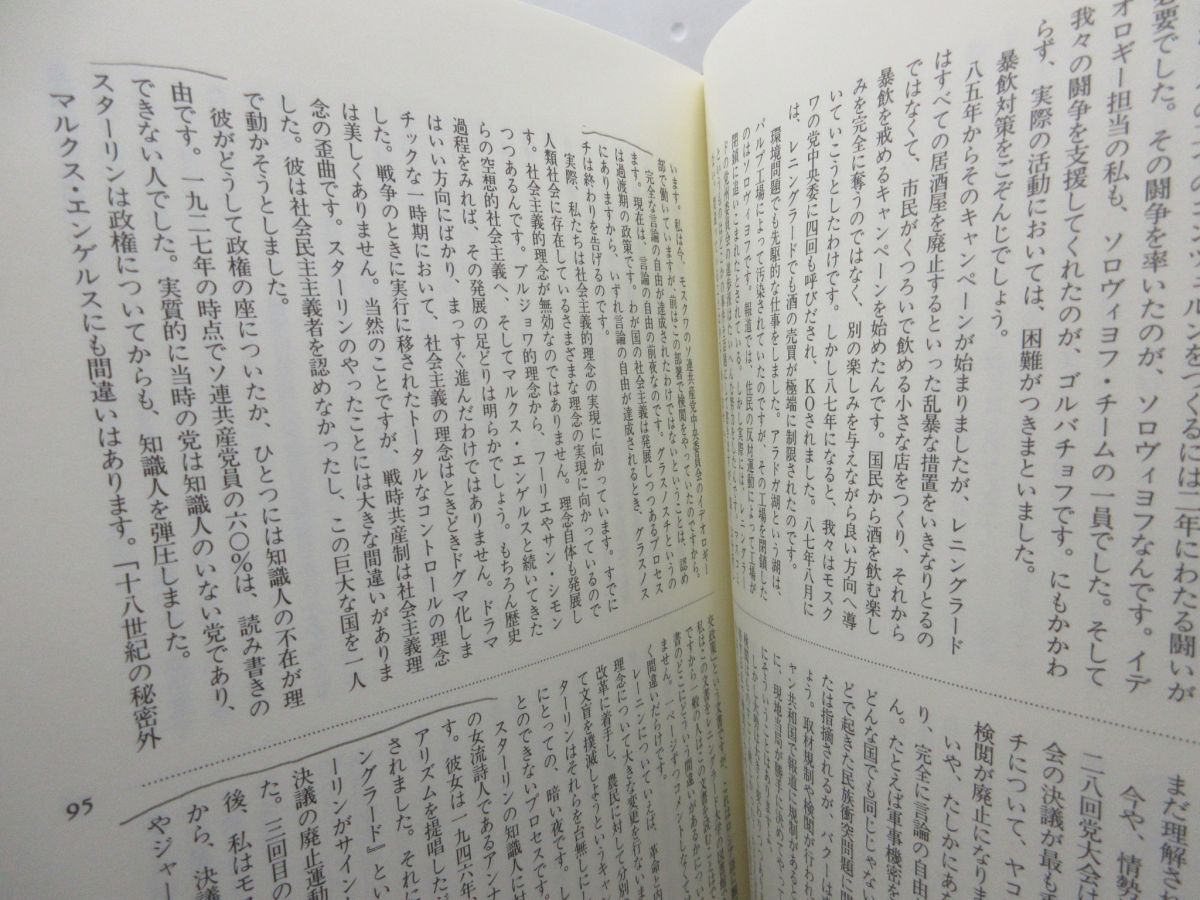 ルンをつくるには二年にわたる闘いが
必要でした。その闘争を率いたのが、ソロヴィヨフなんです。イデ
オロギー担当の私も、ソロヴィヨフ・チームの一員でした。そして
我々の闘争を支援してくれたのが、ゴルバチョフです。にもかかわ
らず、実際の活動においては、困難がつきまといました。
暴飲対策をごぞんじでしょう。
八五年からそのキャンペーンが始まりましたが、レニングラード
はすべての居酒屋を廃止するといった乱暴な措置をいきなりとるの
ではなくて、市民がくつろいで飲める小さな店をつくり、それから
暴飲を戒めるキャンペーンを始めたんです。国民から酒を飲む楽し
みを完全に奪うのではなく、別の楽しみを与えながら良い方向へ導
いていこうとしたわけです。しかし八七年になると、我々はモスク
ワの党中央委に四回も呼びだされ、KOされました。八七年八月に
は、レニングラードでも酒の売買が極端に制限されたのです。
環境問題でも先駆的な仕事をしました。アラドガ湖という湖は、
パルプ工場によって汚染されていたのですが、その工場を閉鎖した
のはソロヴィヨフです。報道では、住民の反対運動によって工場が
閉鎖に追いこまれたとされている。しかし実際には、レニングラ
まだ理解され
今や、情勢
二八回党大会は
会の決議が最も
チについて、ヤコ
検閲が廃止になりま
いや、たしかにあ
り、完全に言論の自由
ん。たとえば軍事機密を
どんな国でも同じじゃない
どで起きた民族衝突問題に関
たは指摘されるが、バクーは
ょう。取材規制や検閲が行われ
ャン共和国で報道に規制があると
に、現地当局が勝手に決めてや
にそういうことはありません。
います。私は今、モスクワのソ連共産党中央委員会のイデオロギー
部で働いていますが、前はこの部署で検閲をやっていたのですから。
完全な言論の自由が達成されたわけではないということは、認め
ます。現在は、言論の自由の前夜なのです。グラスノスチというの
は過渡期の政策です。わが国の社会主義は発展しつつあるプロセス
にありますから、いずれ言論の自由が達成されるとき、グラスノス
チは終わりを告げるのです。
実際、私たちは社会主義的理念の実現に向かっています。すでに
人類社会に存在しているさまざまな理念の実現に向かっているので
す。社会主義的理念が無効なのではありません。理念自体も発展し
つつあるんです。ブルジョワ的理念から、フーリエやサン・シモン
らの空想的社会主義へ、そしてマルクス・エンゲルスと続いてきた
過程をみれば、その発展の足どりは明らかでしょう。もちろん歴史
はいい方向にばかり、まっすぐ進んだわけではありません。ドラマ
チックな一時期において、社会主義の理念はときどきドグマ化しま
した。戦争のときに実行に移されたトータルなコントロールの理念
は美しくありません。当然のことですが、戦時共産制は社会主義理
念の歪曲です。スターリンのやったことには大きな間違いがありま
した。彼は社会民主主義者を認めなかったし、この巨大な国を一人
で動かそうとしました。
彼がどうして政権の座についたか、ひとつには知識人の不在が理
由です。一九二七年の時点でソ連共産党員の六〇％は、読み書きの
できない人でした。実質的に当時の党は知識人のいない党であり、
スターリンは政権についてからも、知識人を弾圧しました。
マルクス・エンゲルスにも間違いはあります。「十八世紀の秘密外
交政策」という文書ですが、
ません。一ページずつコメントしなく
く間違いだらけです。
レーニンについていえば、革命と内
理念について大きな変更を行ないま
改革に着手し、農民に対して分別
て文盲を撲滅しようというキャン
ターリンはそれらを台無しにし
とのできないプロセスです。
にとっての、暗い夜です。し
スターリンの知識人に対
の女流詩人であるアンナ
す。彼女は一九四六年、
アリズムを提唱した
されました。それに
ングラード』とい
ーリンがサイン
決議の廃止運動
た。三回目の
後、私はモ
から、決議
やジャー
95